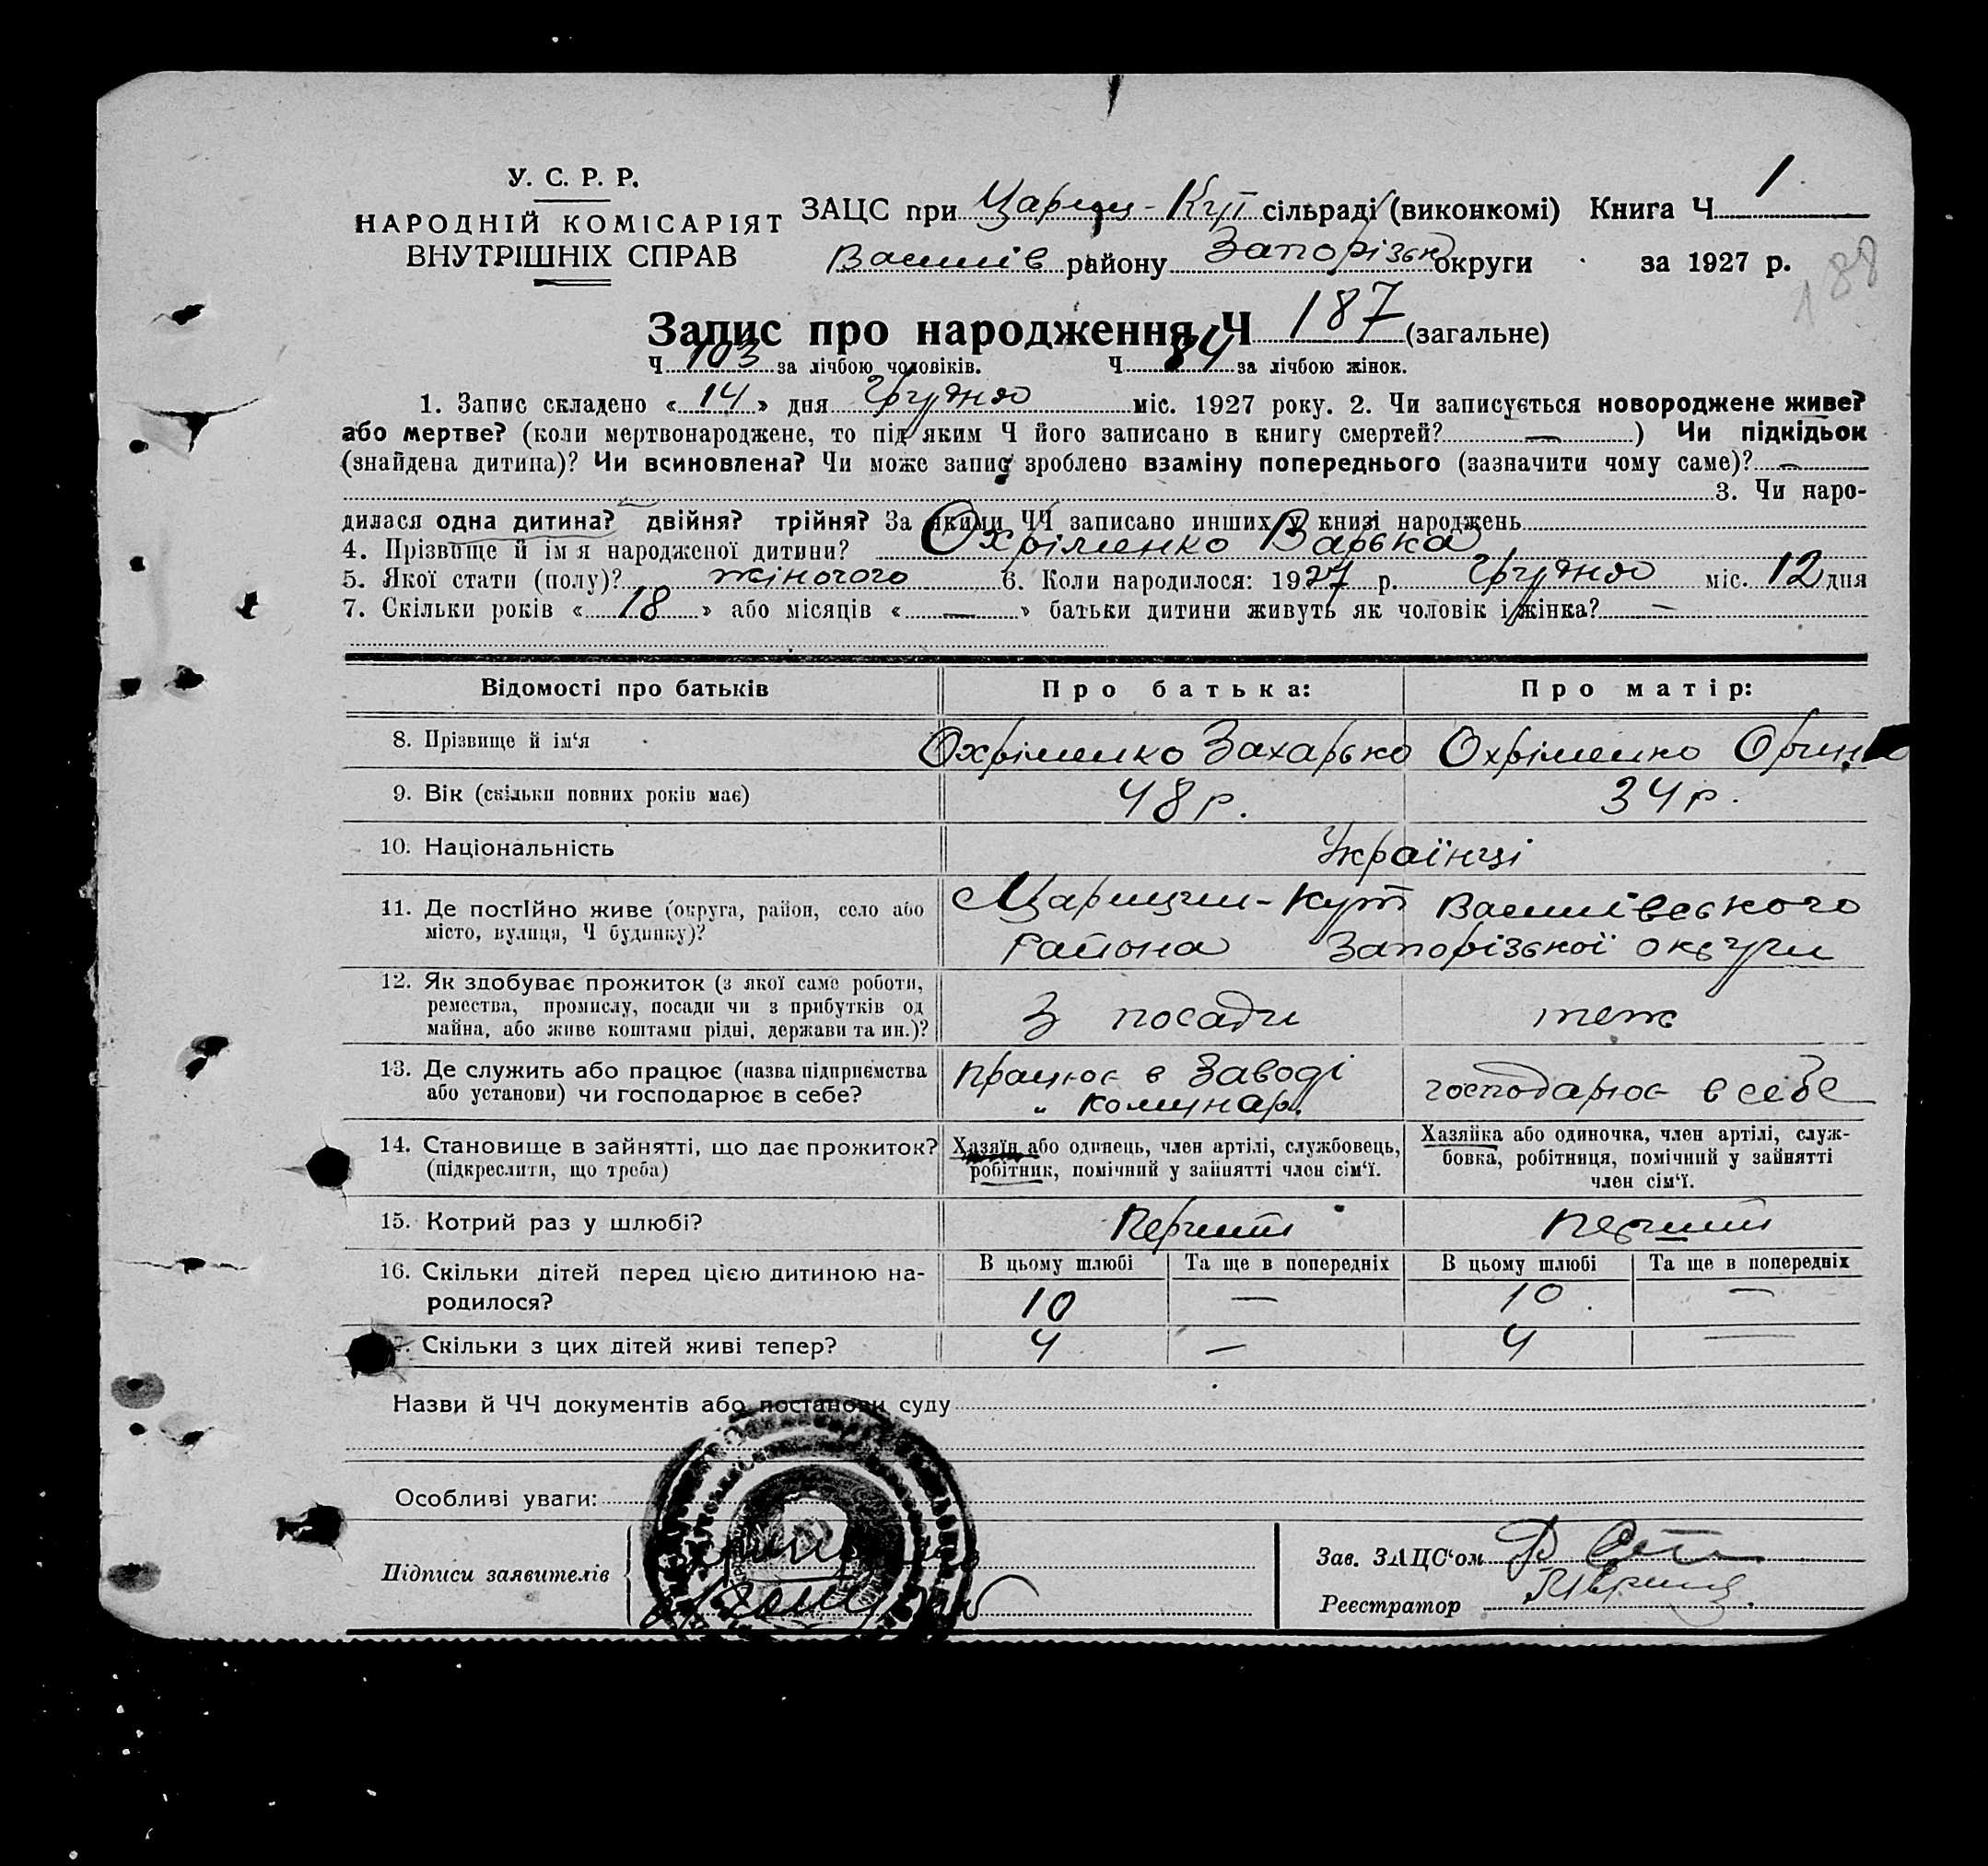 У. С. Р. Р.
НАРОДНІЙ КОМІСАРІЯТ
ВНУТРІШНІХ СПРАВ
ЗАЦС при Царицин-Кут сільраді (виконкомі) Книга Ч 1
Василів району Запорізьк округи за 1927 р.
188
Запис про народження Ч 187 (загальне)
Ч 103 за лічбою чоловіків. Ч 84 за лічбою жінок.
1. Запис складено « 14 » дня Грудня міс. 1927 року. 2. Чи записується новороджене живе?
або мертве? (коли мертвонароджене, то під яким Ч його записано в книгу смертей? — ) Чи підкідьок
(знайдена дитина)? Чи всиновлена? Чи може запис зроблено взаміну попереднього (зазначити чому саме)? —
3. Чи наро-
дилася одна дитина? двійня? трійня? За якими ЧЧ записано инших у книзі народжень
4. Прізвище й ім'я народженої дитини? Охріменко Варька
5. Якої стати (полу)? жіночого 6. Коли народилося: 1927 р. Грудня міс. 12 дня
7. Скільки років « 18 » або місяців « — » батьки дитини живуть як чоловік і жінка? —
Відомості про батьків Про батька: Про матір:
8. Прізвище й ім'я Охріменко Захарько Охріменко Орина
9. Вік (скільки повних років має) 48 р. 34 р.
10. Національність Українці
11. Де постійно живе (округа, район, село або
місто, вулиця, Ч будинку)?
Царицин-Кут Василівського
Района Запорізької округи
12. Як здобуває прожиток (з якої саме роботи,
ремества, промислу, посади чи з прибутків од
майна, або живе коштами рідні, держави та ин.)?
З посади теж
13. Де служить або працює (назва підприємства
або установи) чи господарює в себе?
працює в Заводі
„ Комунар.
господарює в себе
14. Становище в зайнятті, що дає прожиток?
(підкреслити, що треба)
Хазяїн або одинець, член артілі, службовець,
робітник, помічний у зайнятті член сім'ї.
Хазяйка або одиночка, член артілі, служ-
бовка, робітниця, помічний у зайнятті
член сім'ї.
15. Котрий раз у шлюбі? Перший Перший
16. Скільки дітей перед цією дитиною на-
родилося?
В цьому шлюбі Та ще в попередніх В цьому шлюбі Та ще в попередніх
10 — 10 —
Скільки з цих дітей живі тепер? 4 — 4 —
Назви й ЧЧ документів або постанови суду
Особливі уваги:
Підписи заявителів
Зав. ЗАЦС'ом
Реєстратор